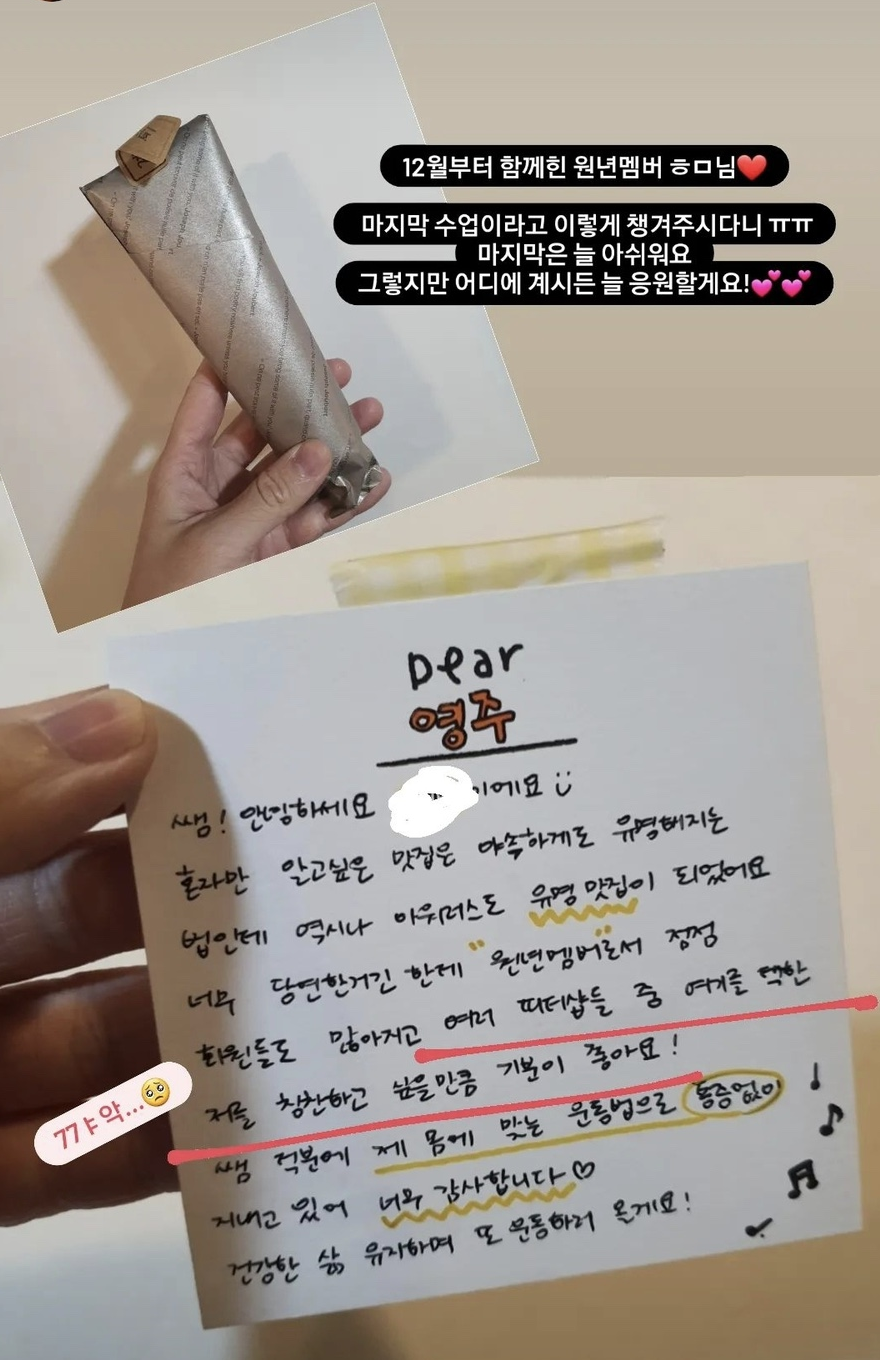 12월부터 함께힌 원년멤버 ㅎㅁ님❤️
마지막 수업이라고 이렇게 챙겨주시다니 ㅠㅠ
마지막은 늘 아쉬워요
그렇지만 어디에 계시든 늘 응원할게요!💕💕
Dear
영주
쌤! 안녕하세요 이에요
혼자만 알고싶은 맛집은 야속하게도 유명해지는
법인데 역시나 아워러스도 유명 맛집이 되었어요
너무 당연한거긴 한데 "원년멤버"로서 점점
회원들도 많아지고 여러 띠터샵들 중 여기를 택한
저를 칭찬하고 싶을만큼 기분이 좋아요!
77ㅑ악...🥺
쌤 덕분에 제 몸에 맞는 운동법으로 통증없이
지내고 있어 너무 감사합니다♡
건강한 삶 유지하며 또 운동하러 올게요!